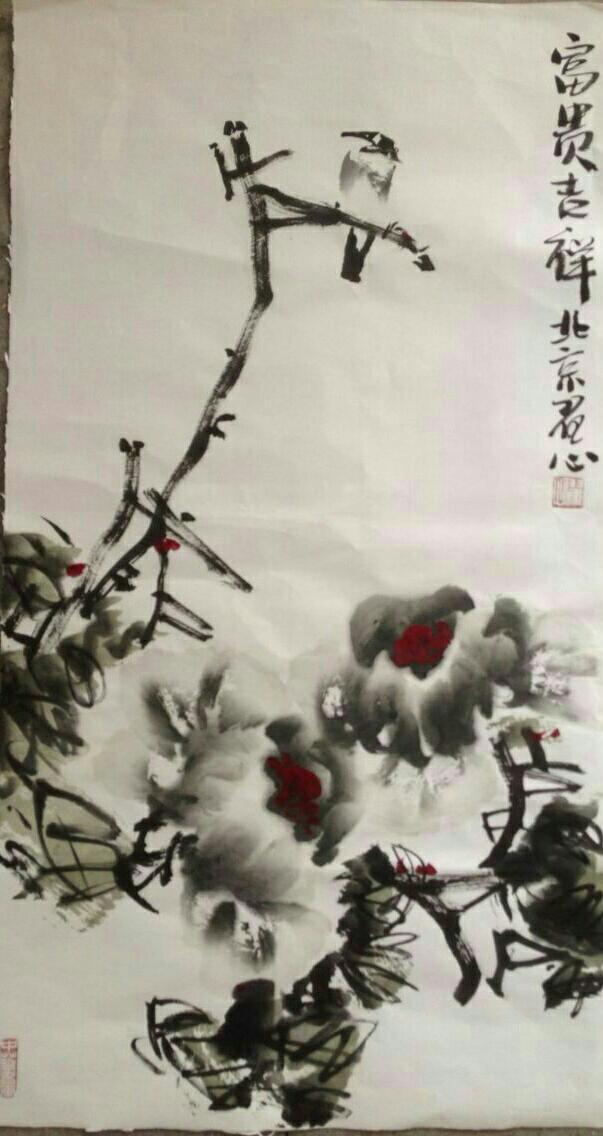 富贵吉祥北京君心